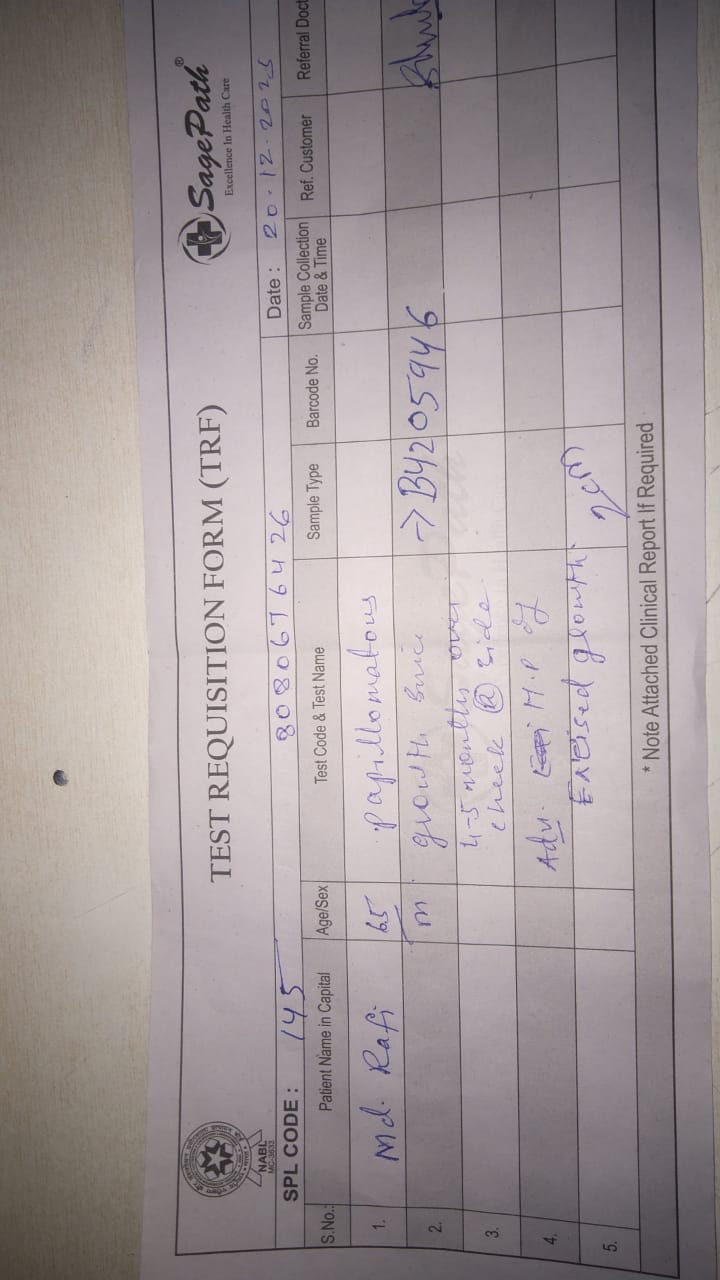 NABL
MC-3633
TEST REQUISITION FORM (TRF)
SagePath®
Excellence In Health Care
SPL CODE : 145
8080676426
Date : 20.12.2025
S.No.: Patient Name in Capital Age/Sex Test Code & Test Name Sample Type Barcode No. Sample Collection Date & Time Ref. Customer Referral Doct
1. Md. Rafi 65 papillomatous
2. m growth since → B4205946
3. 4-5 months over
cheek @ side.
4. Adv. H.P of
5. Excised growth.
* Note Attached Clinical Report If Required